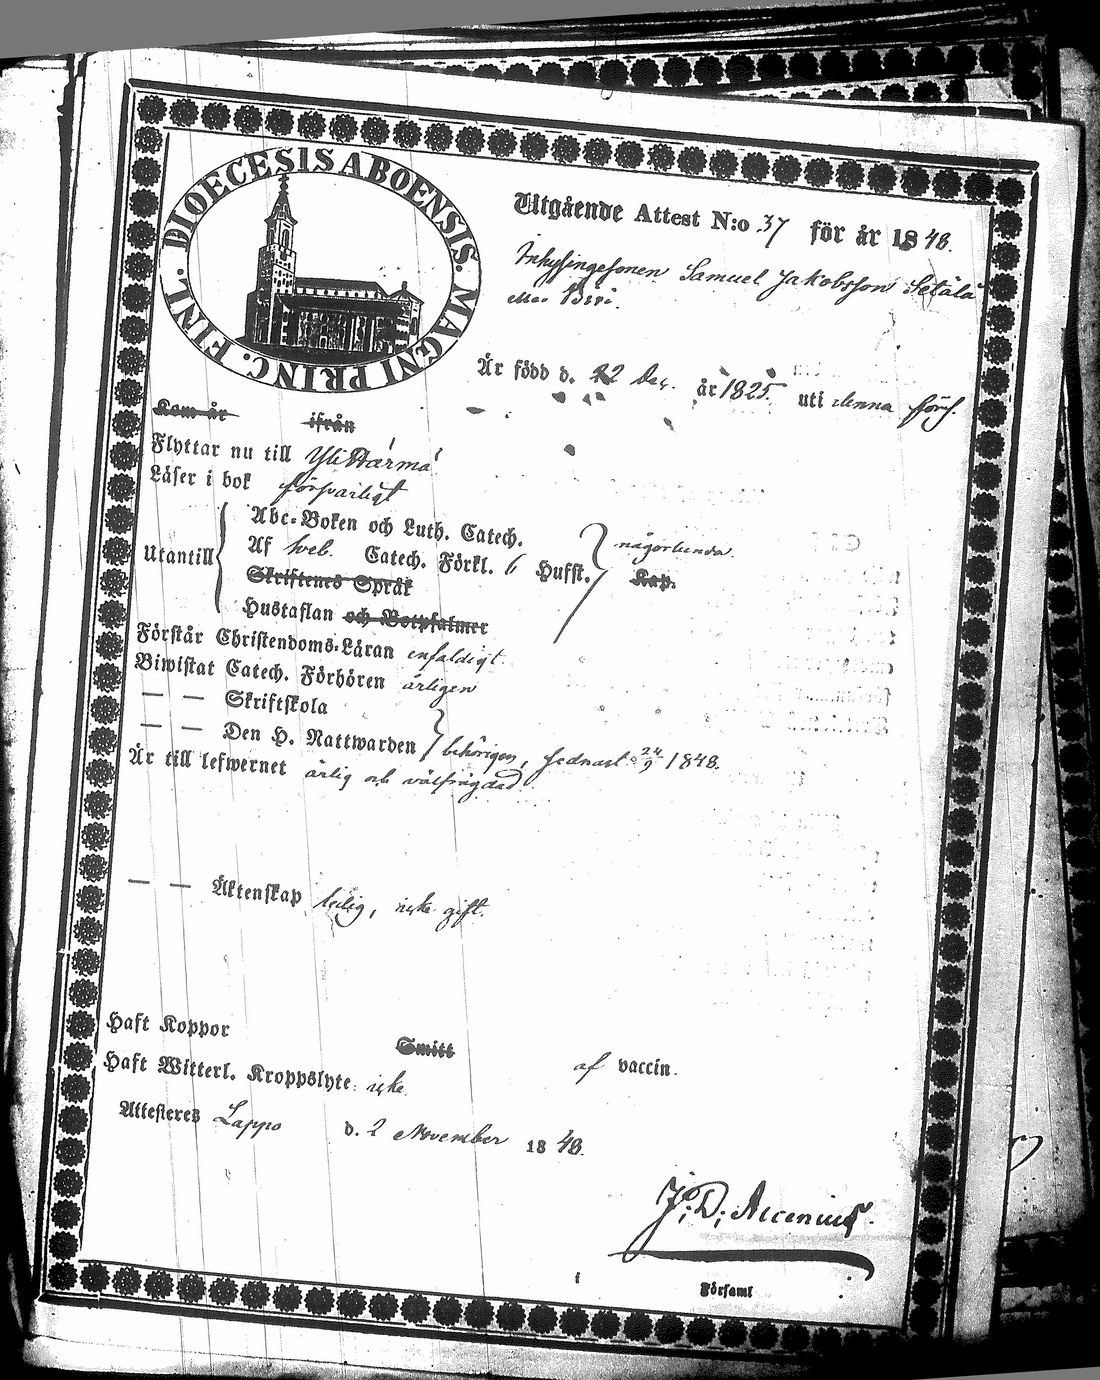 DIOECESIS ABOENSIS. MAGNI PRINC. FINL.
Utgående Attest N:o 37 för år 1848.
Inhysingesonen Samuel Jakobsson Setälä
Är född d. 22 Dec. år 1825 uti denna förs.
Kom år ifrån
Flyttar nu till Ylihärmä
Läser i bok försvarligt
Abc-Boken och Luth. Catech.
Utantill Af Sveb. Catech. Förkl. 6 Hufst. någorlunda.
Skriftenes Språk Kap.
Hustaflan och Botpsalmer
Förstår Christendoms-Läran enfaldigt
Biwistat Catech. Förhören årligen
— — Skriftskola
— — Den H. Nattwarden behörigen, sednast 24/9 1848.
Är till lefwernet ärlig och välfrägdad
— — Äktenskap ledig, icke gift.
Haft Koppor Smitt af vaccin.
Haft Witterl. Kroppslyte: icke
Attesteres Lappo d. 2 November 1848.
J: D: Alcenius.
i Församl